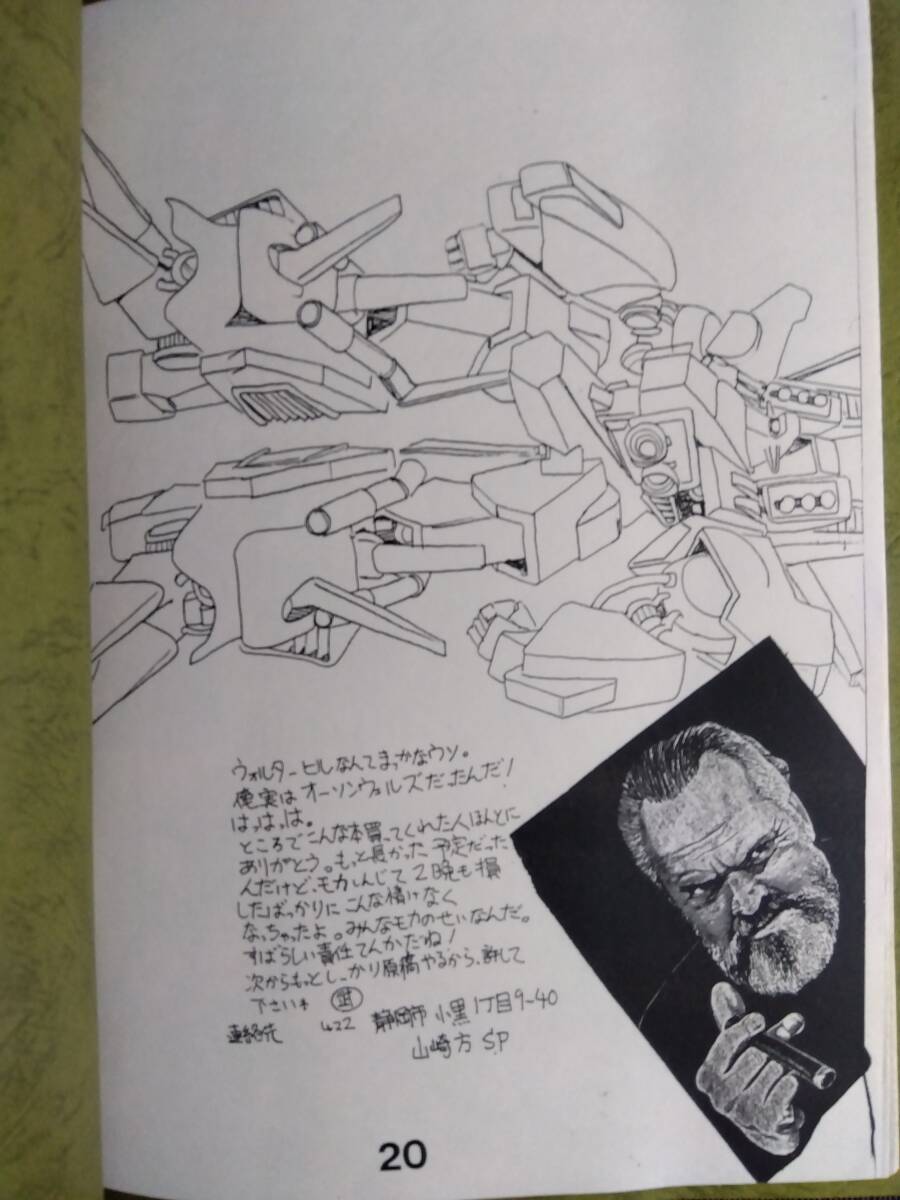 ウォルターヒルなんてまっかなウソ。
俺実はオーソンウェルズだったんだ!
はっはっは。
ところでこんな本買ってくれた人ほんとに
ありがとう。もっと長かった予定だった
んだけど、モカしんじて2晩も損
したばっかりにこんな情けなく
なっちゃったよ。みんなモカのせいなんだ。
すばらしい責任てんかだね!
次からもっとしっかり原稿やるから、許して
下さいネ 武
連絡先 422 静岡市小黒1丁目9-40
山崎方 S.P
20